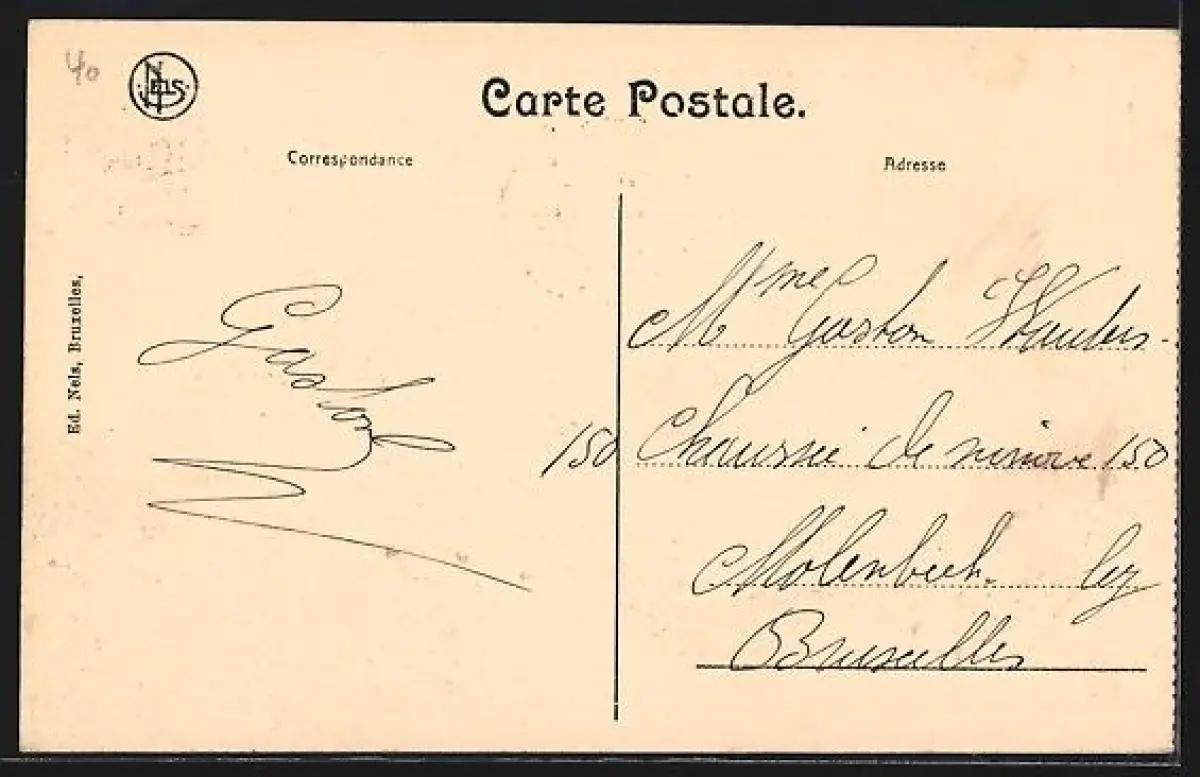 40
NELS
Carte Postale.
Correspondance
Adresse
Ed. Nels, Bruxelles,
Gaston
Mme Gaston
150 Chaussée de ninove 150
Molenbeek lez
Bruxelles